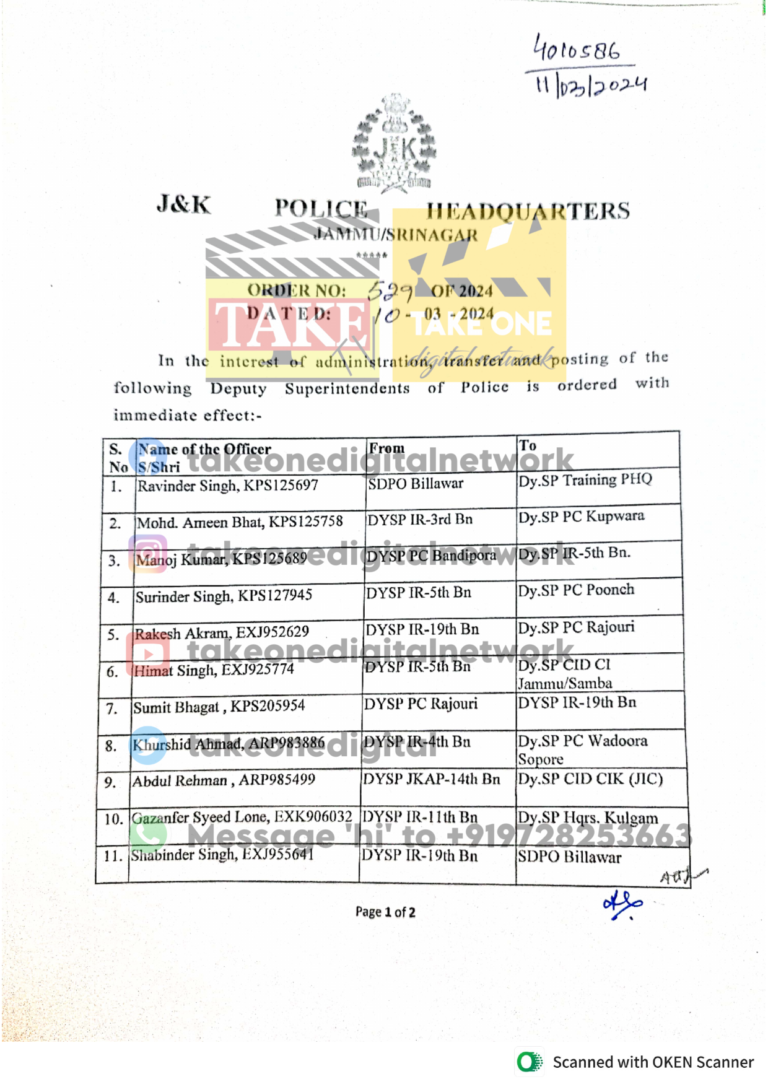 4010586
11/03/2024
J&K
J&K POLICE HEADQUARTERS
JAMMU/SRINAGAR
*****
ORDER NO: 529 OF 2024
DATED: 10 - 03 - 2024
TAKE
TAKE ONE
digital network
In the interest of administration, transfer and posting of the
following Deputy Superintendents of Police is ordered with
immediate effect:-
S. No Name of the Officer S/Shri From To
takeonedigitalnetwork
1. Ravinder Singh, KPS125697 SDPO Billawar Dy.SP Training PHQ
2. Mohd. Ameen Bhat, KPS125758 DYSP IR-3rd Bn Dy.SP PC Kupwara
3. Manoj Kumar, KPS125689 DYSP PC Bandipora Dy.SP IR-5th Bn.
takeonedigitalnetwork
4. Surinder Singh, KPS127945 DYSP IR-5th Bn Dy.SP PC Poonch
5. Rakesh Akram, EXJ952629 DYSP IR-19th Bn Dy.SP PC Rajouri
takeonedigitalnetwork
6. Himat Singh, EXJ925774 DYSP IR-5th Bn Dy.SP CID CI Jammu/Samba
7. Sumit Bhagat , KPS205954 DYSP PC Rajouri DYSP IR-19th Bn
8. Khurshid Ahmad, ARP983886 DYSP IR-4th Bn Dy.SP PC Wadoora Sopore
takeonedigital
9. Abdul Rehman , ARP985499 DYSP JKAP-14th Bn Dy.SP CID CIK (JIC)
10. Gazanfer Syeed Lone, EXK906032 DYSP IR-11th Bn Dy.SP Hqrs. Kulgam
Message 'hi' to +919728253663
11. Shabinder Singh, EXJ955641 DYSP IR-19th Bn SDPO Billawar
Page 1 of 2
Scanned with OKEN Scanner